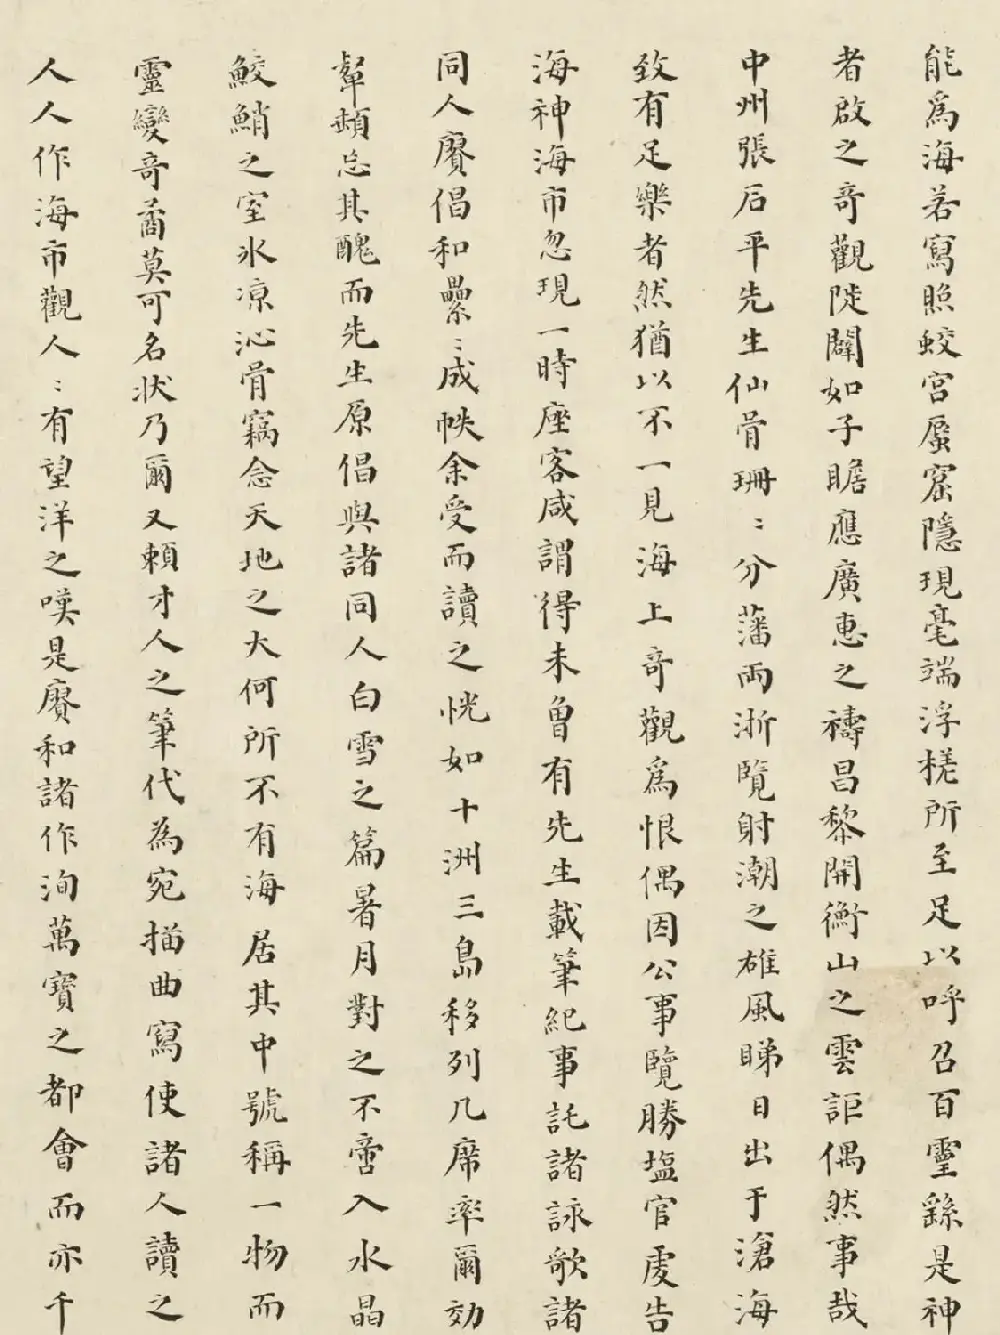 能爲海若寫照蛟宮蜃窟隱現毫端浮槎所至足以呼召百靈繇是神
者啟之奇觀陡闢如子瞻應廣惠之禱昌黎開衡山之雲詎偶然事哉
中州張石平先生仙骨珊〻分藩兩浙覽射潮之雄風睇日出于滄海
致有足樂者然猶以不一見海上奇觀爲恨偶因公事覽勝塩官虔告
海神海市忽現一時座客咸謂得未曾有先生載筆紀事託諸詠歌諸
同人賡倡和纍〻成帙余受而讀之恍如十洲三島移列几席率爾効
顰頼忘其醜而先生原倡與諸同人白雪之篇暑月對之不啻入水晶
鮫鮹之室氷凉沁骨竊念天地之大何所不有海居其中號稱一物而
靈變奇矞莫可名狀乃爾又頼才人之筆代為宛描曲寫使諸人讀之
人人作海市觀人〻有望洋之嘆是賡和諸作洵萬寶之都會而亦千